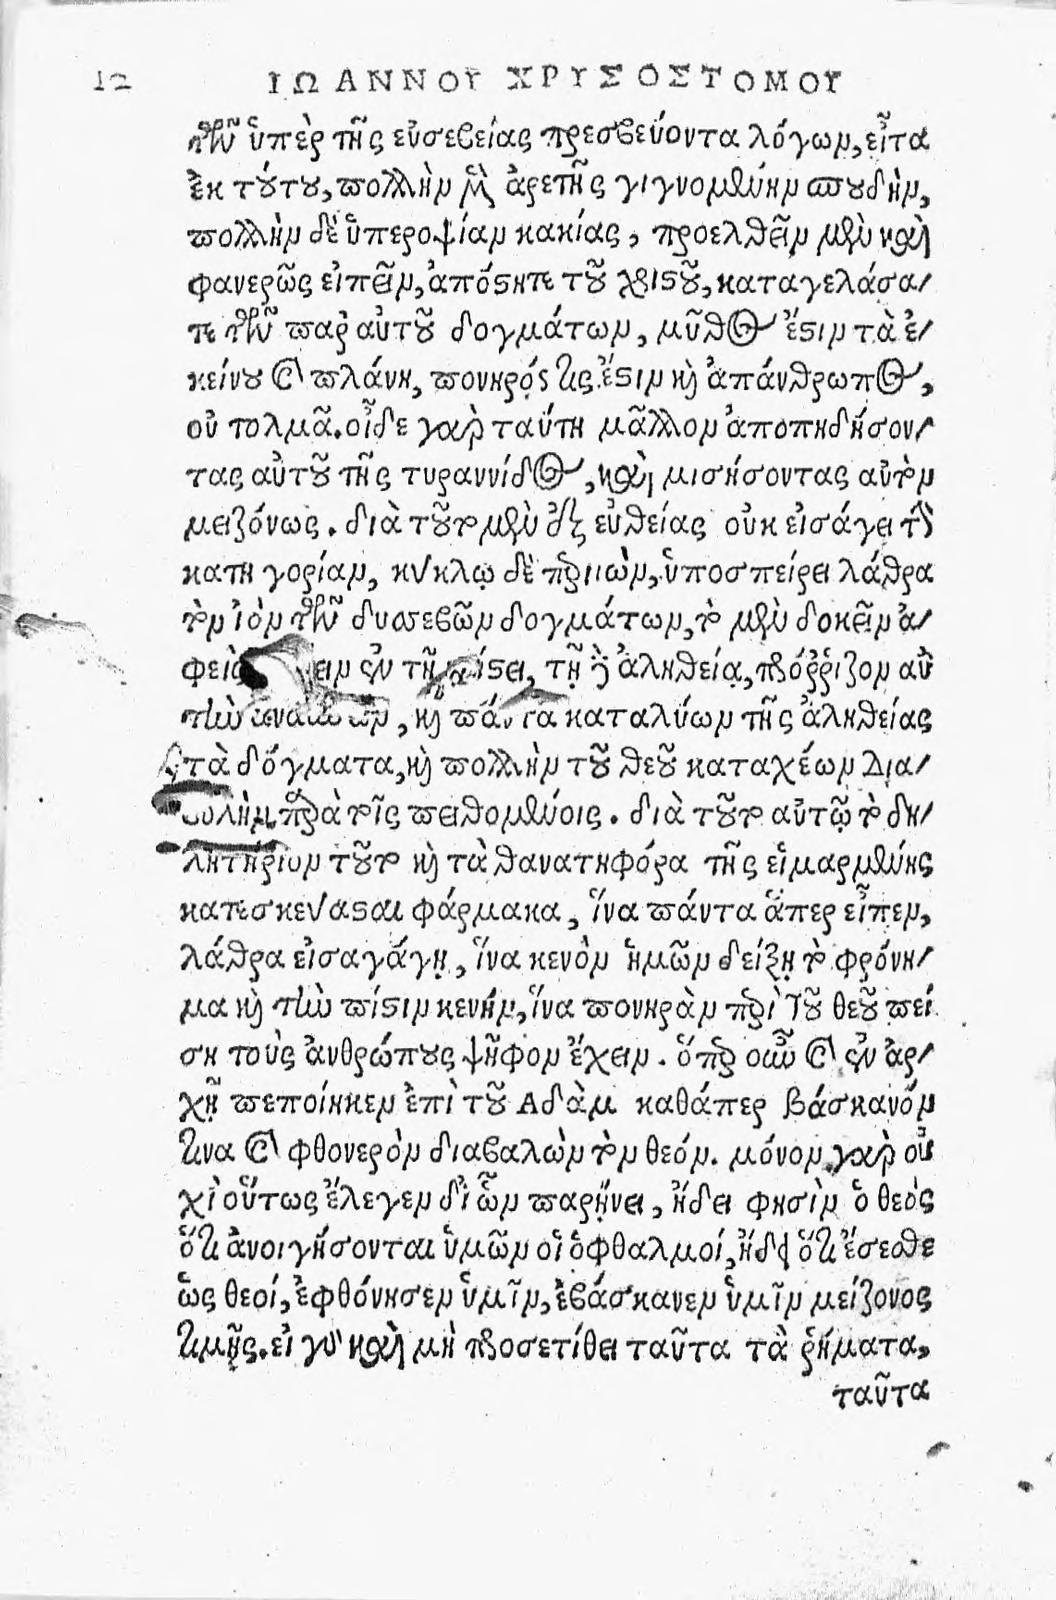 12 ΙΩΑΝΝΟΥ ΧΡΥΣΟΣΤΟΜΟΥ
τῶν ὑπὲρ τῆς εὐσεβείας πρεσβεύοντα λόγων, εἶτα
ἐκ τούτου, πολλὴν μὲν ἀρετῆς γιγνομένην σπουδὴν,
πολλὴν δὲ ὑπεροψίαν κακίας, προελθεῖν μὲν καὶ
φανερῶς εἰπεῖν, ἀπόστητε τοῦ χριστοῦ, καταγελάσα-
τε τῶν παρ' αὐτοῦ δογμάτων, μῦθος ἔστιν τὰ ἐ-
κείνου καὶ πλάνη, πονηρός τις ἔστιν καὶ ἀπάνθρωπος,
οὐ τολμᾶ. οἶδε γὰρ ταύτη μᾶλλον ἀποπηδήσον-
τας αὐτοῦ τῆς τυραννίδος, καὶ μισήσοντας αὐτὸν
μειζόνως. διὰ τοῦτο μὲν ἐξ εὐθείας οὐκ εἰσάγει τὴν
κατηγορίαν, κύκλῳ δὲ περιιὼν, ὑποσπείρει λάθρα
τὸν ἰὸν τῶν δυσσεβῶν δογμάτων, τὸ μὲν δοκεῖν ἀ-
φεὶς ἐν τῇ πίστει, τῇ δὲ ἀληθείᾳ, πρόρριζον αὐ
τὴν, καὶ πάντα καταλύων τῆς ἀληθείας
τὰ δόγματα, καὶ πολλὴν τοῦ θεοῦ καταχέων Δια-
βολὴν παρὰ τοῖς πειθομένοις. διὰ τοῦτο αὐτῷ τὸ δη-
λητήριον τοῦτο καὶ τὰ θανατηφόρα τῆς εἱμαρμένης
κατεσκεύασται φάρμακα, ἵνα πάντα ἅπερ εἶπεν,
λάθρα εἰσαγάγῃ, ἵνα κενὸν ἡμῶν δείξῃ τὸ φρόνη-
μα καὶ τὴν πίστιν κενήν, ἵνα πονηρὰν περὶ τοῦ θεοῦ πεί
ση τοὺς ἀνθρώπους ψῆφον ἔχειν. ὅπερ οὖν καὶ ἐν ἀρ-
χῇ πεποίηκεν ἐπὶ τοῦ Αδὰμ καθάπερ βάσκανόν
τινα καὶ φθονερὸν διαβαλὼν τὸν θεόν. μόνον γὰρ οὐ
χὶ οὕτως ἔλεγεν δι' ὧν παρῄνει, ἤδει φησὶν ὁ θεὸς
ὅτι ἀνοιγήσονται ὑμῶν οἱ ὀφθαλμοί, ἤδει ὅτι ἔσεσθε
ὡς θεοί, ἐφθόνησεν ὑμῖν, ἐβάσκανεν ὑμῖν μείζονος
τιμῆς. εἰ γὰρ καὶ μὴ προσετίθει ταῦτα τὰ ῥήματα,
ταῦτα